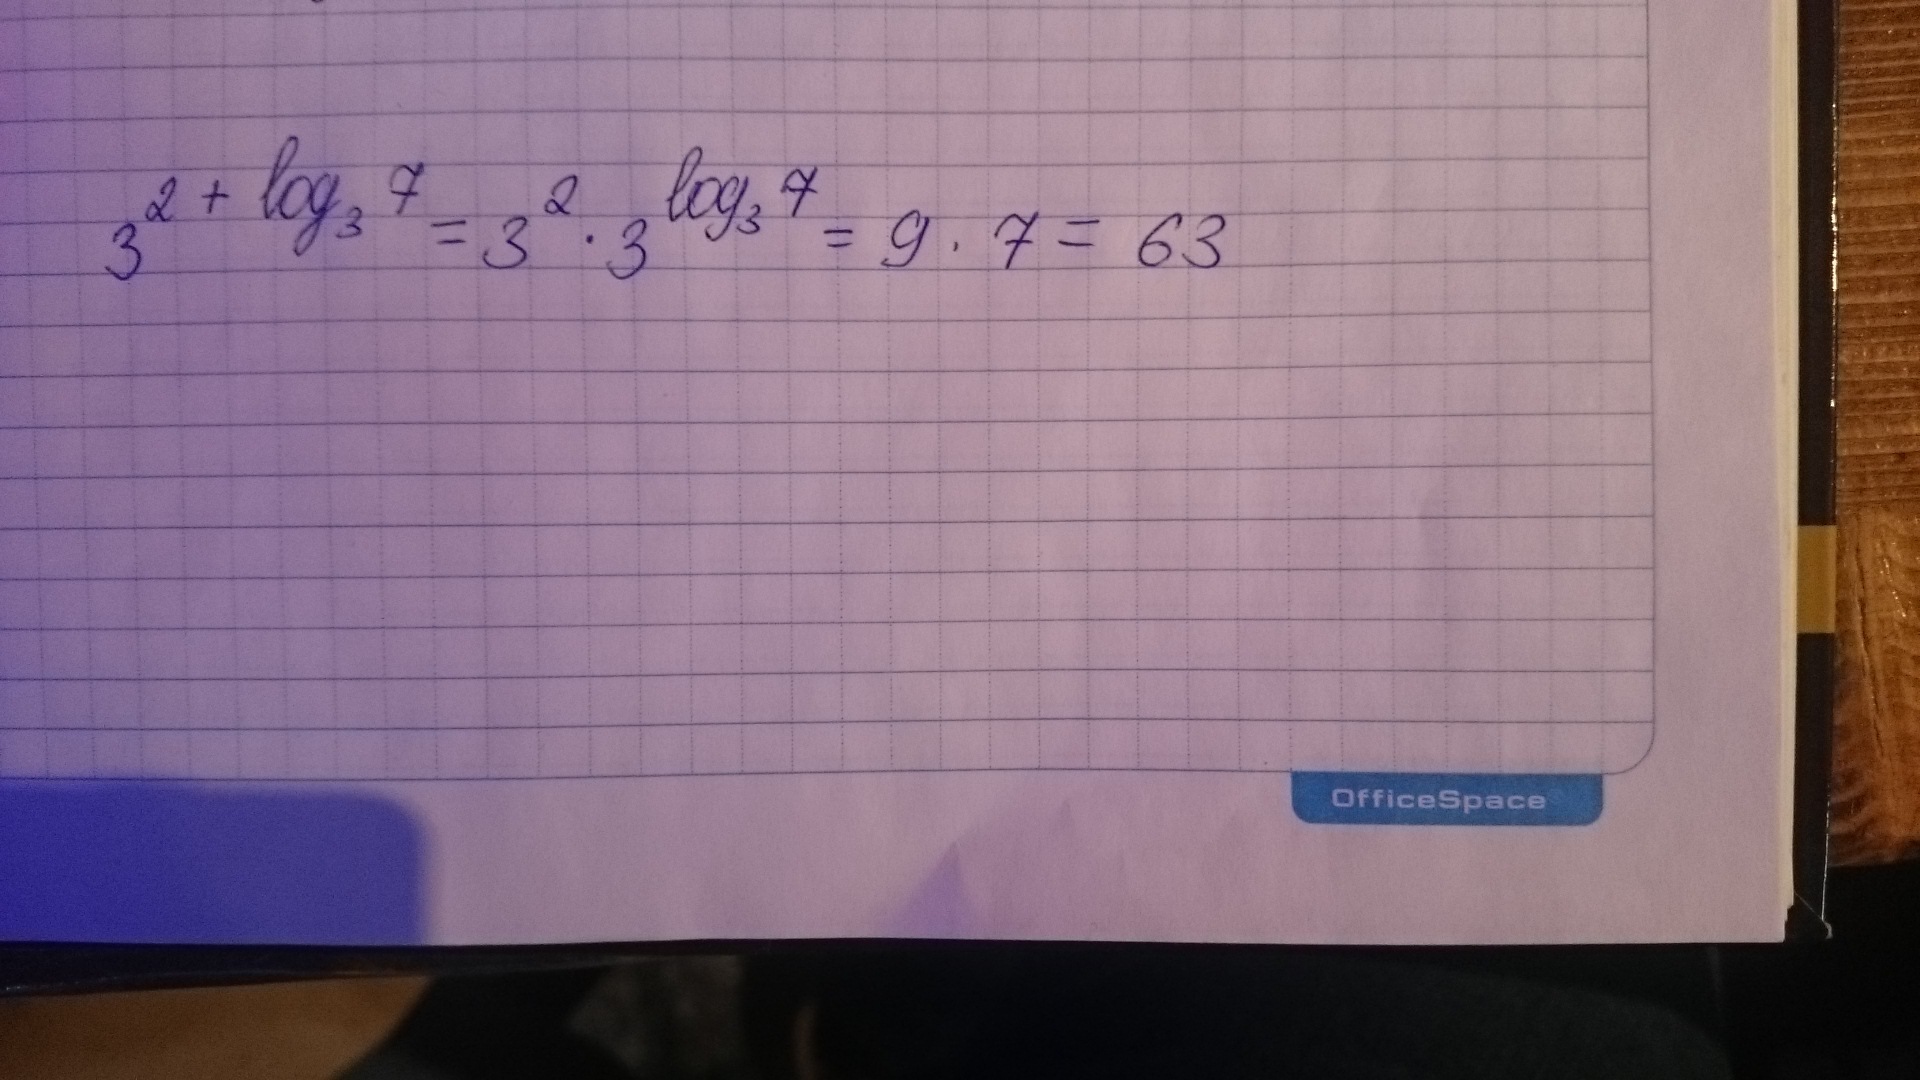 3^{2 + log_3 7} = 3^2 · 3^{log_3 7} = 9 · 7 = 63
OfficeSpace